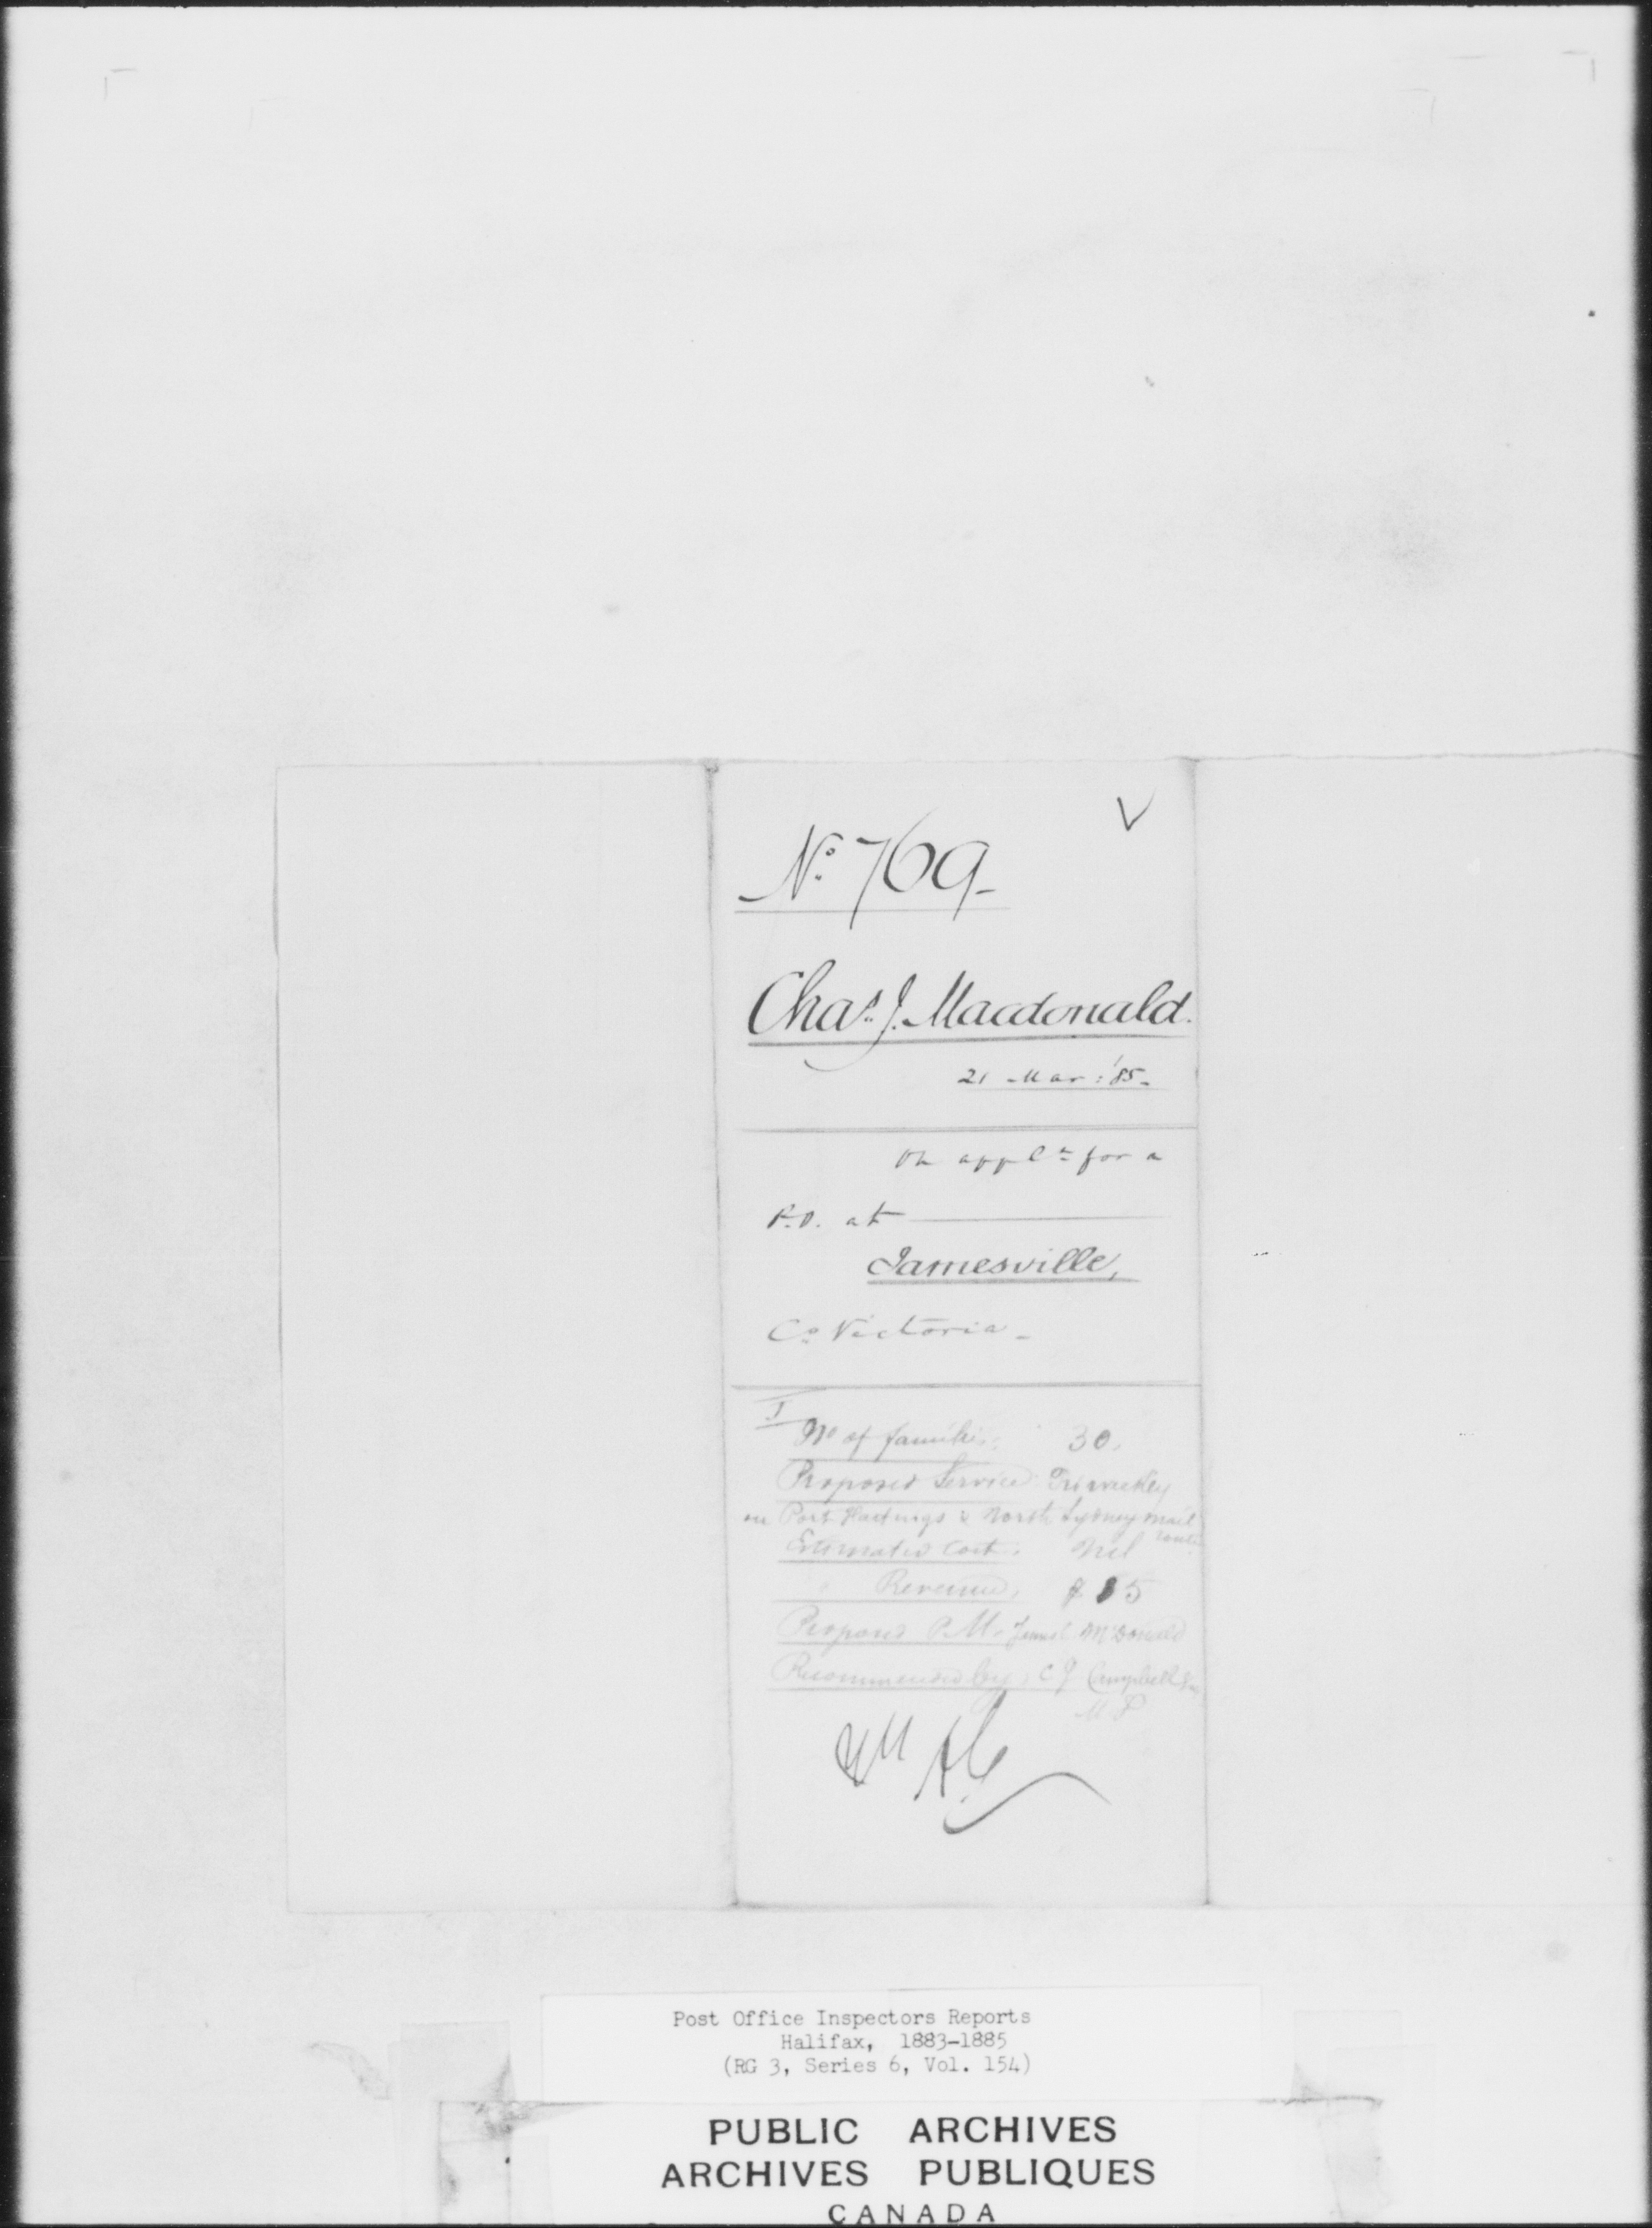 V
No. 769-
Chas. J. Macdonald.
21 Mar: '85-
On applcn for a
P.O. at
Jamesville,
Co Victoria-
I
No of families: 30.
Proposed Service Tri weekly
on Port Hastings & North Sydney mail
route
Estimated Cost. Nil
" Revenue, $
Proposed P.M. McDonald
Recommended by, C J Campbell
M P
Post Office Inspectors Reports
Halifax, 1883-1885
(RG 3, Series 6, Vol. 154)
PUBLIC ARCHIVES
ARCHIVES PUBLIQUES
CANADA